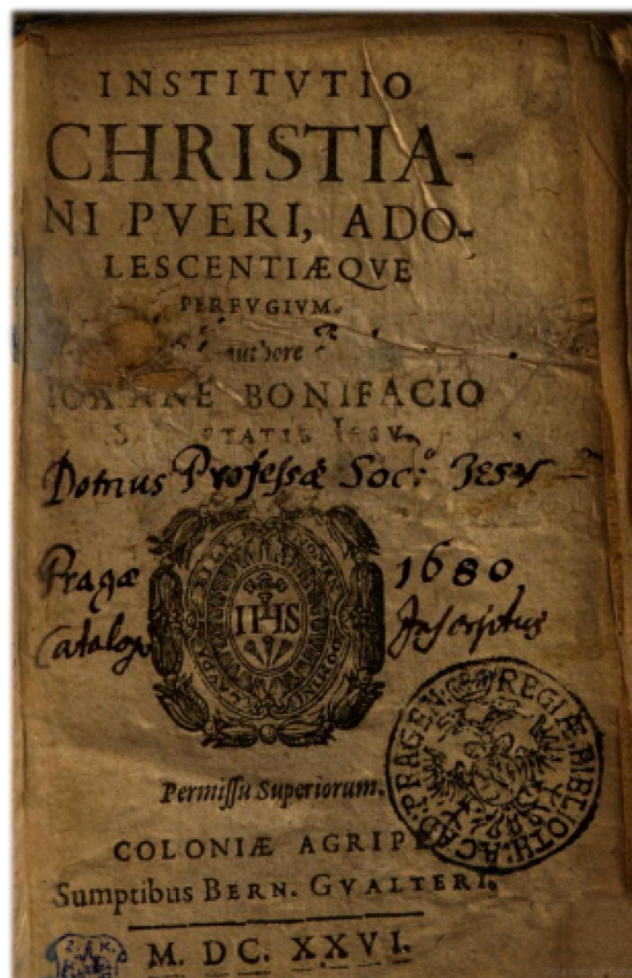 INSTITVTIO
CHRISTIA-
NI PVERI, ADO-
LESCENTIÆQVE
PERFVGIVM.
authore
IOANNE BONIFACIO
SOCIETATIS IESV.
Domus Professæ Soc: Jesu
Pragæ 1680
Catalogo Inscriptus
LAVDABILE NOMEN DOMINI
IHS
REGIÆ BIBLIOTH: ACAD: PRAGEN:
Permissu Superiorum.
COLONIÆ AGRIPP
Sumptibus BERN. GVALTERI.
M. DC. XXVI.